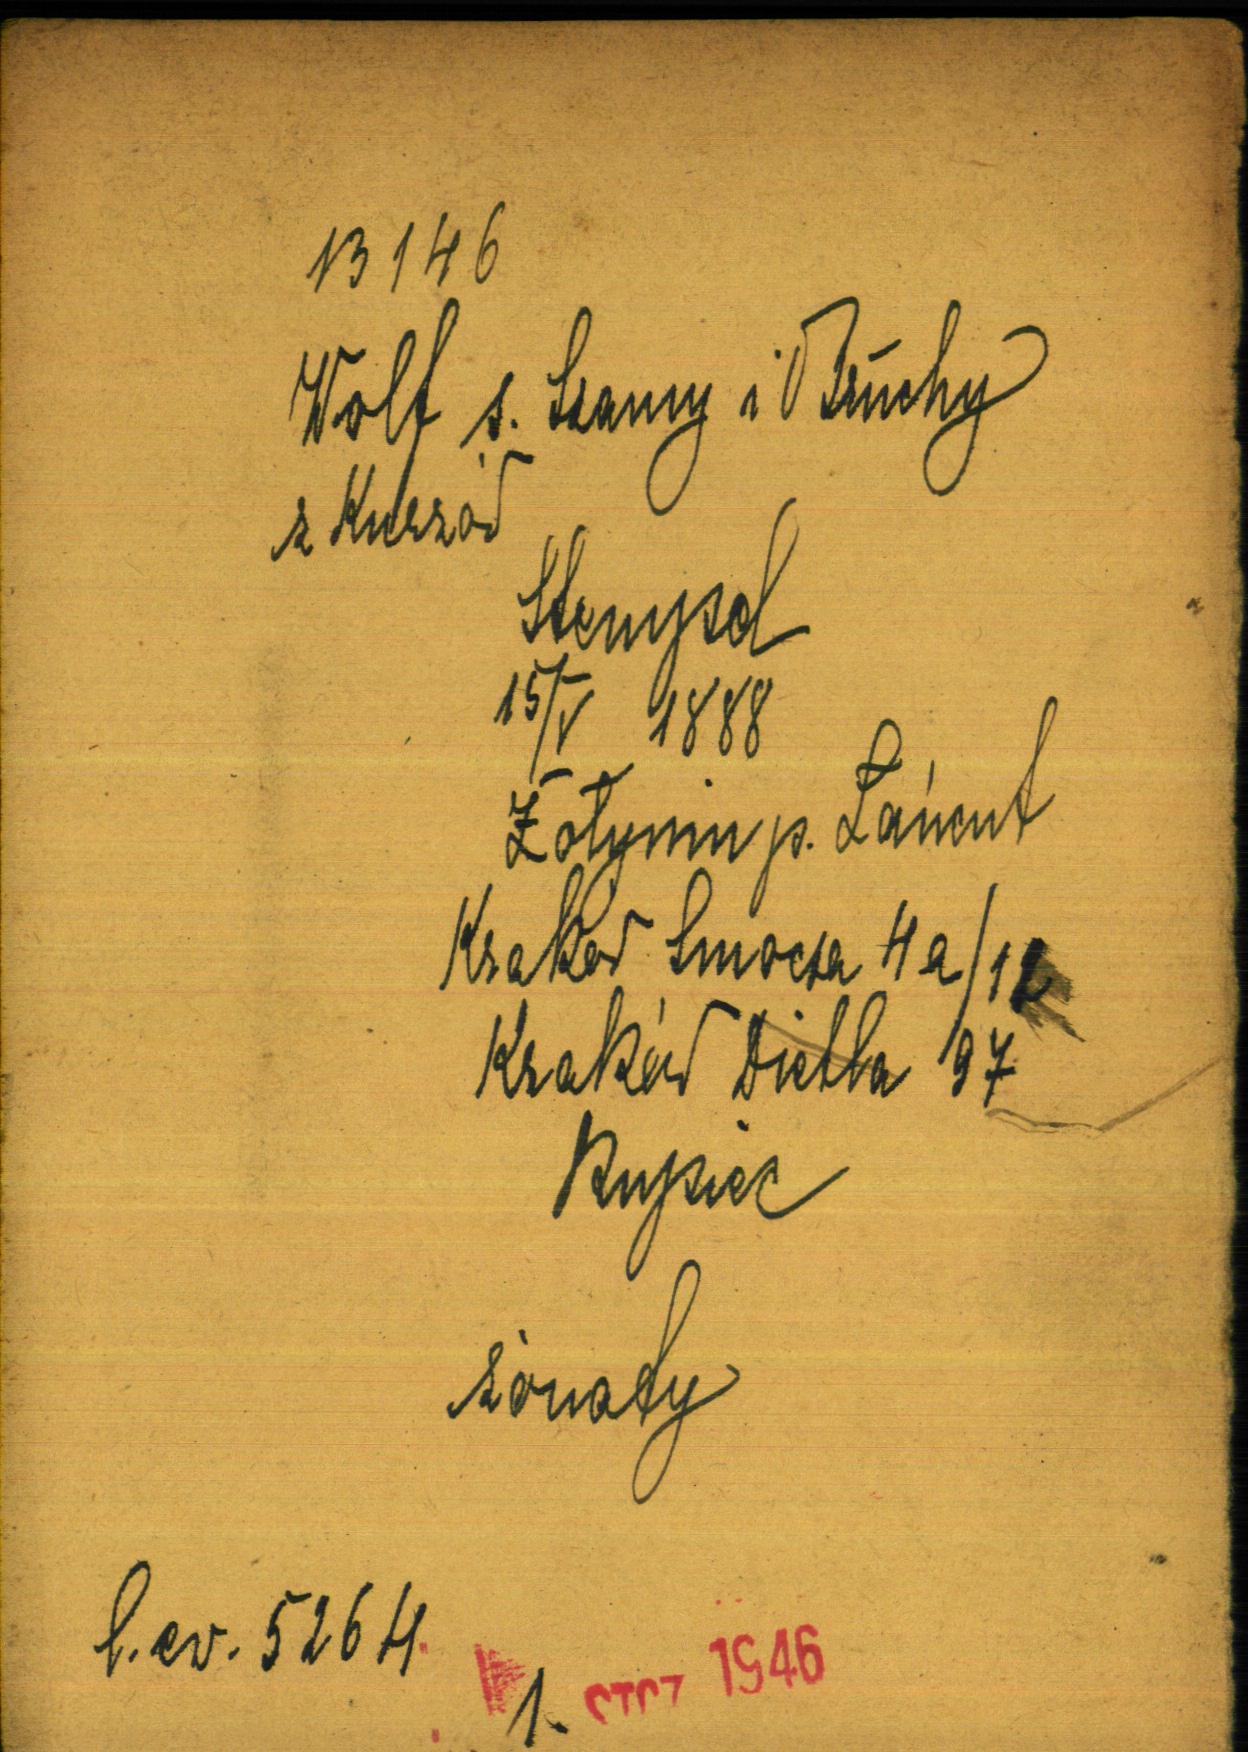 13146
Wolf s. Szamy i Bruchy
z Kurzów
Stempel
15/V 1888
Żołynin p. Łańcut
Kraków Smocza 4a/12
Kraków Dietla 97
Kupiec
żonaty
l. ev. 5264
1. 1946